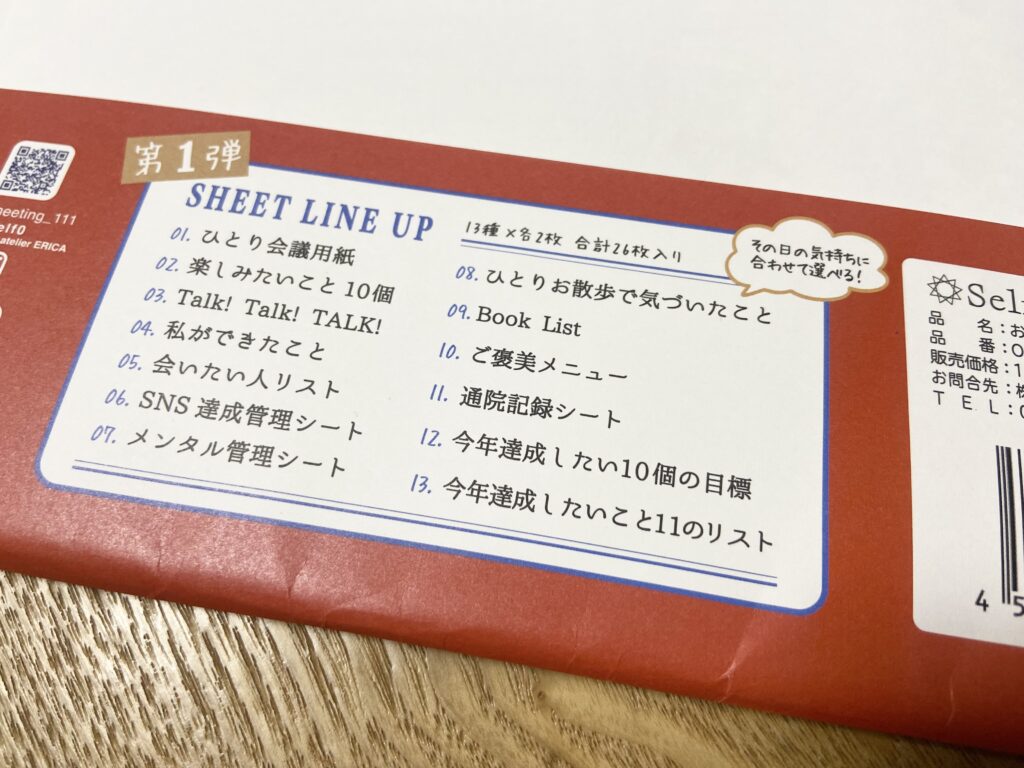 第1弾
SHEET LINE UP
13種×各2枚 合計26枚入り
その日の気持ちに
合わせて選べる!
01. ひとり会議用紙
02. 楽しみたいこと10個
03. Talk! Talk! TALK!
04. 私ができたこと
05. 会いたい人リスト
06. SNS達成管理シート
07. メンタル管理シート
08. ひとりお散歩で気づいたこと
09. Book List
10. ご褒美メニュー
11. 通院記録シート
12. 今年達成したい10個の目標
13. 今年達成したいこと11のリスト
eeting_111
elf0
atelier ERICA
Sel
品 名:お
品 番:0
販売価格:1
お問合先:株
TEL:0
4 5